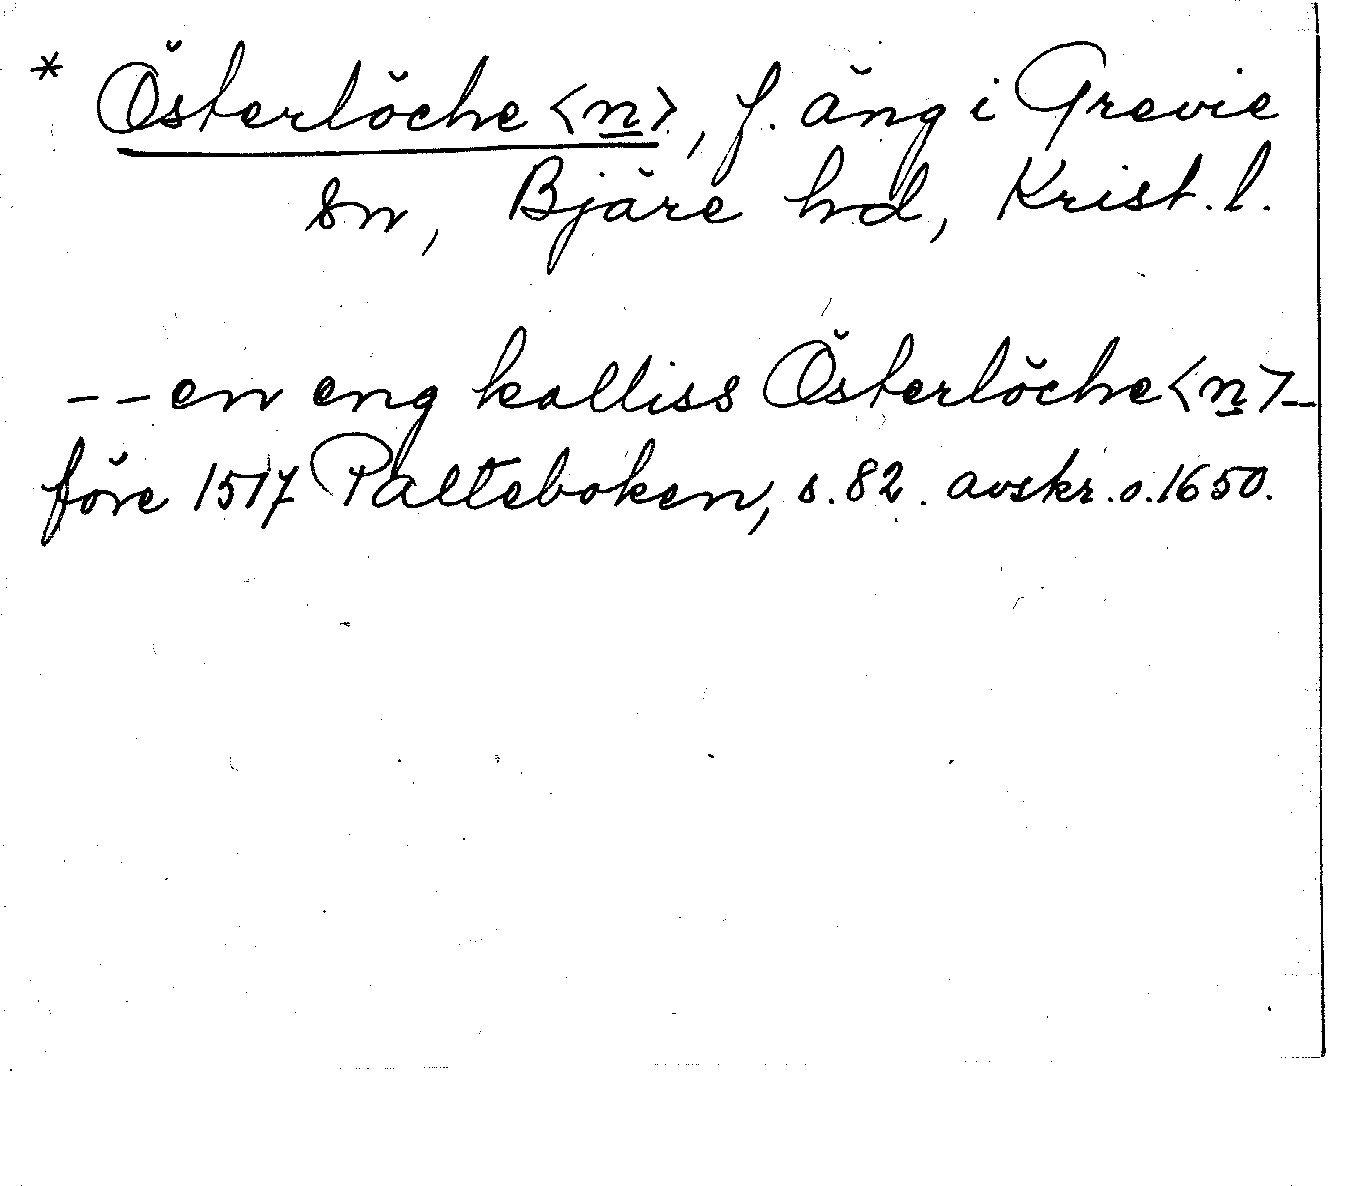 * Österlöche <n>, f. äng i Grevie
sn, Bjäre hd, Krist. l.
-- en eng kalliss Österlöche <n> --
före 1517 Palteboken, s. 82. avskr. o. 1650.